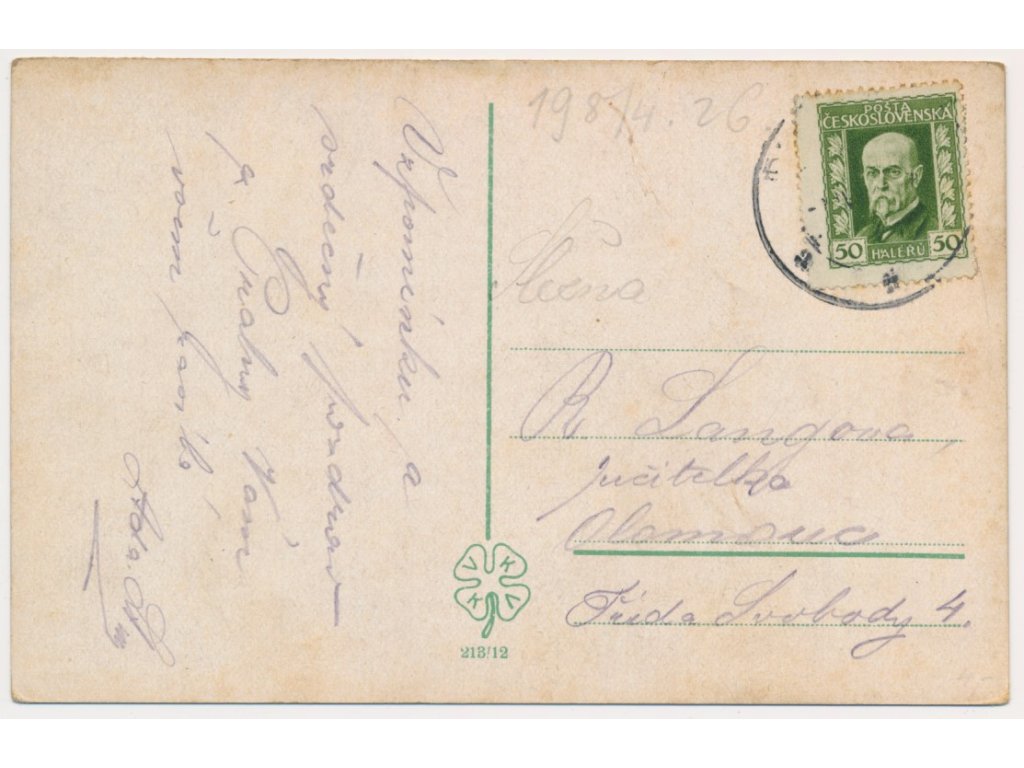 Vzpomínku a
srdečný pozdrav
z Prahy Vám
všem zasílá
198/4. 26
POŠTA
ČESKOSLOVENSKÁ
50 HALÉŘŮ 50
Slečna
R. Langova,
učitelka
Olomouc
Třída Svobody 4.
V K
K V
213/12